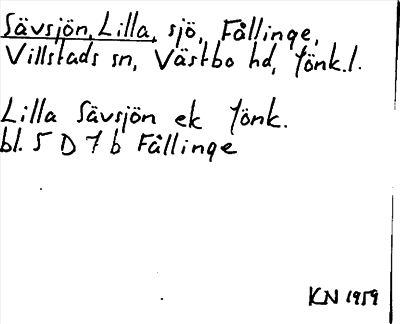 Sävsjön, Lilla, sjö, Fållinge,
Villstads sn, Västbo hd, Jönk.l.
Lilla Sävsjön ek Jönk.
bl. 5 D 7 b Fållinge
KN 1959